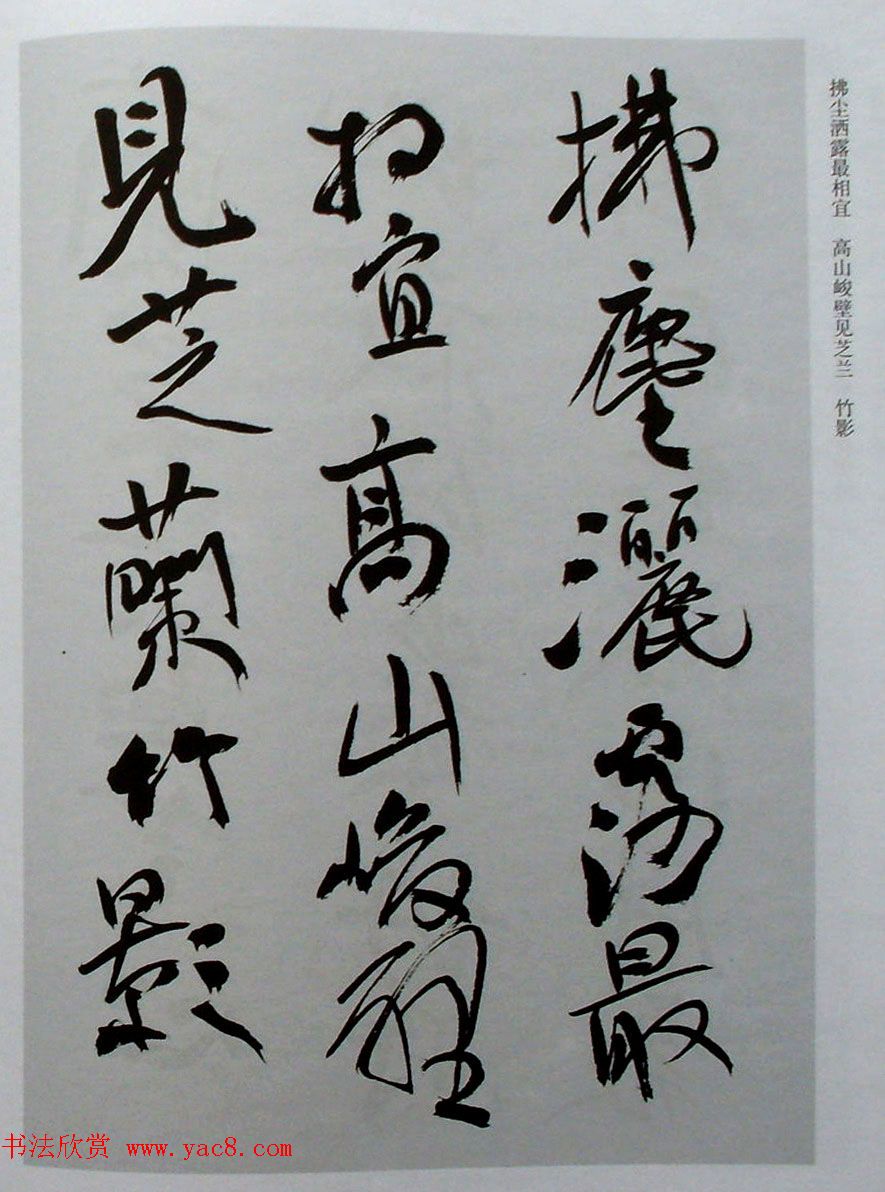 拂尘洒露最相宜 高山峻壁见芝兰 竹影
拂塵灑露最
相宜高山峻壁
見芝蘭竹影
书法欣赏 www.yac8.com